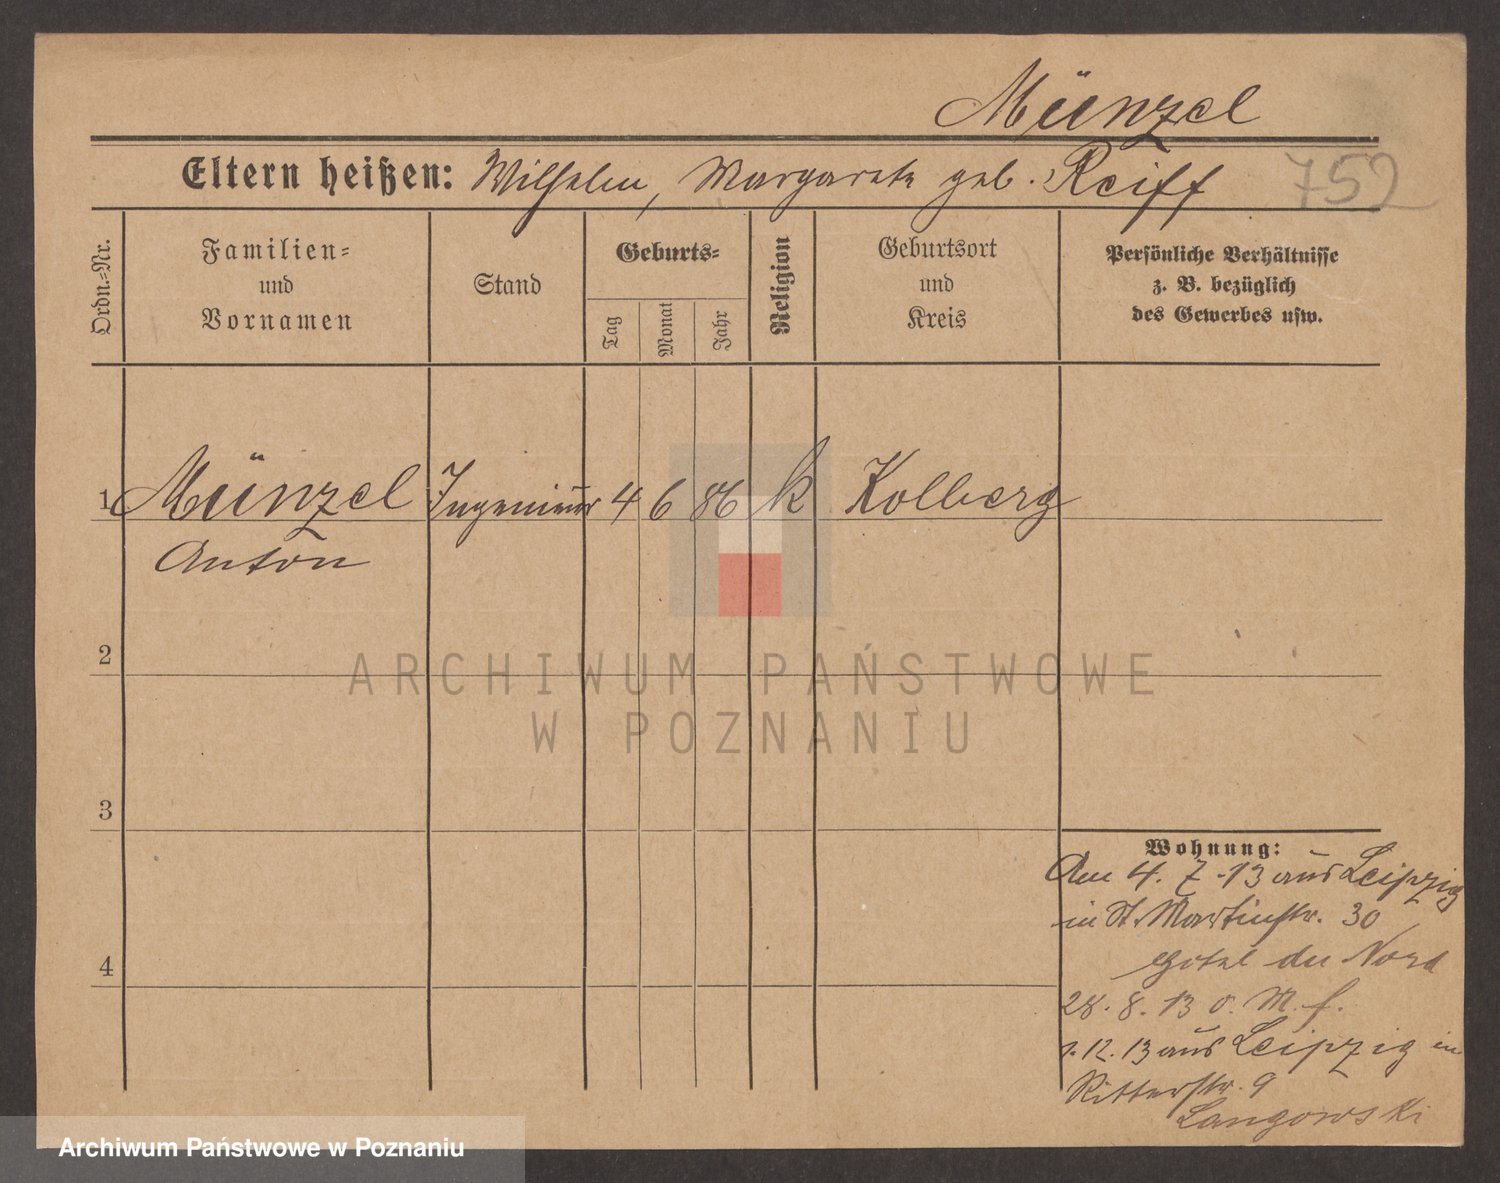 Münzel
Eltern heißen: Wilhelm, Margarete geb. Reiff
752
Ordn.-Nr.
Familien-
und
Vornamen
Stand
Geburts-
Tag
Monat
Jahr
Religion
Geburtsort
und
Kreis
Persönliche Verhältnisse
z. B. bezüglich
des Gewerbes usw.
1 Münzel Ingenieur 4 6 86 k Kolberg
Anton
2
ARCHIWUM PAŃSTWOWE
W POZNANIU
3
Wohnung:
Am 4. 7. 13 aus Leipzig
in St. Martinstr. 30
Hotel du Nord
4
28. 8. 13 o. M. f.
1. 12. 13 aus Leipzig in
Ritterstr. 9
Langowski
Archiwum Państwowe w Poznaniu